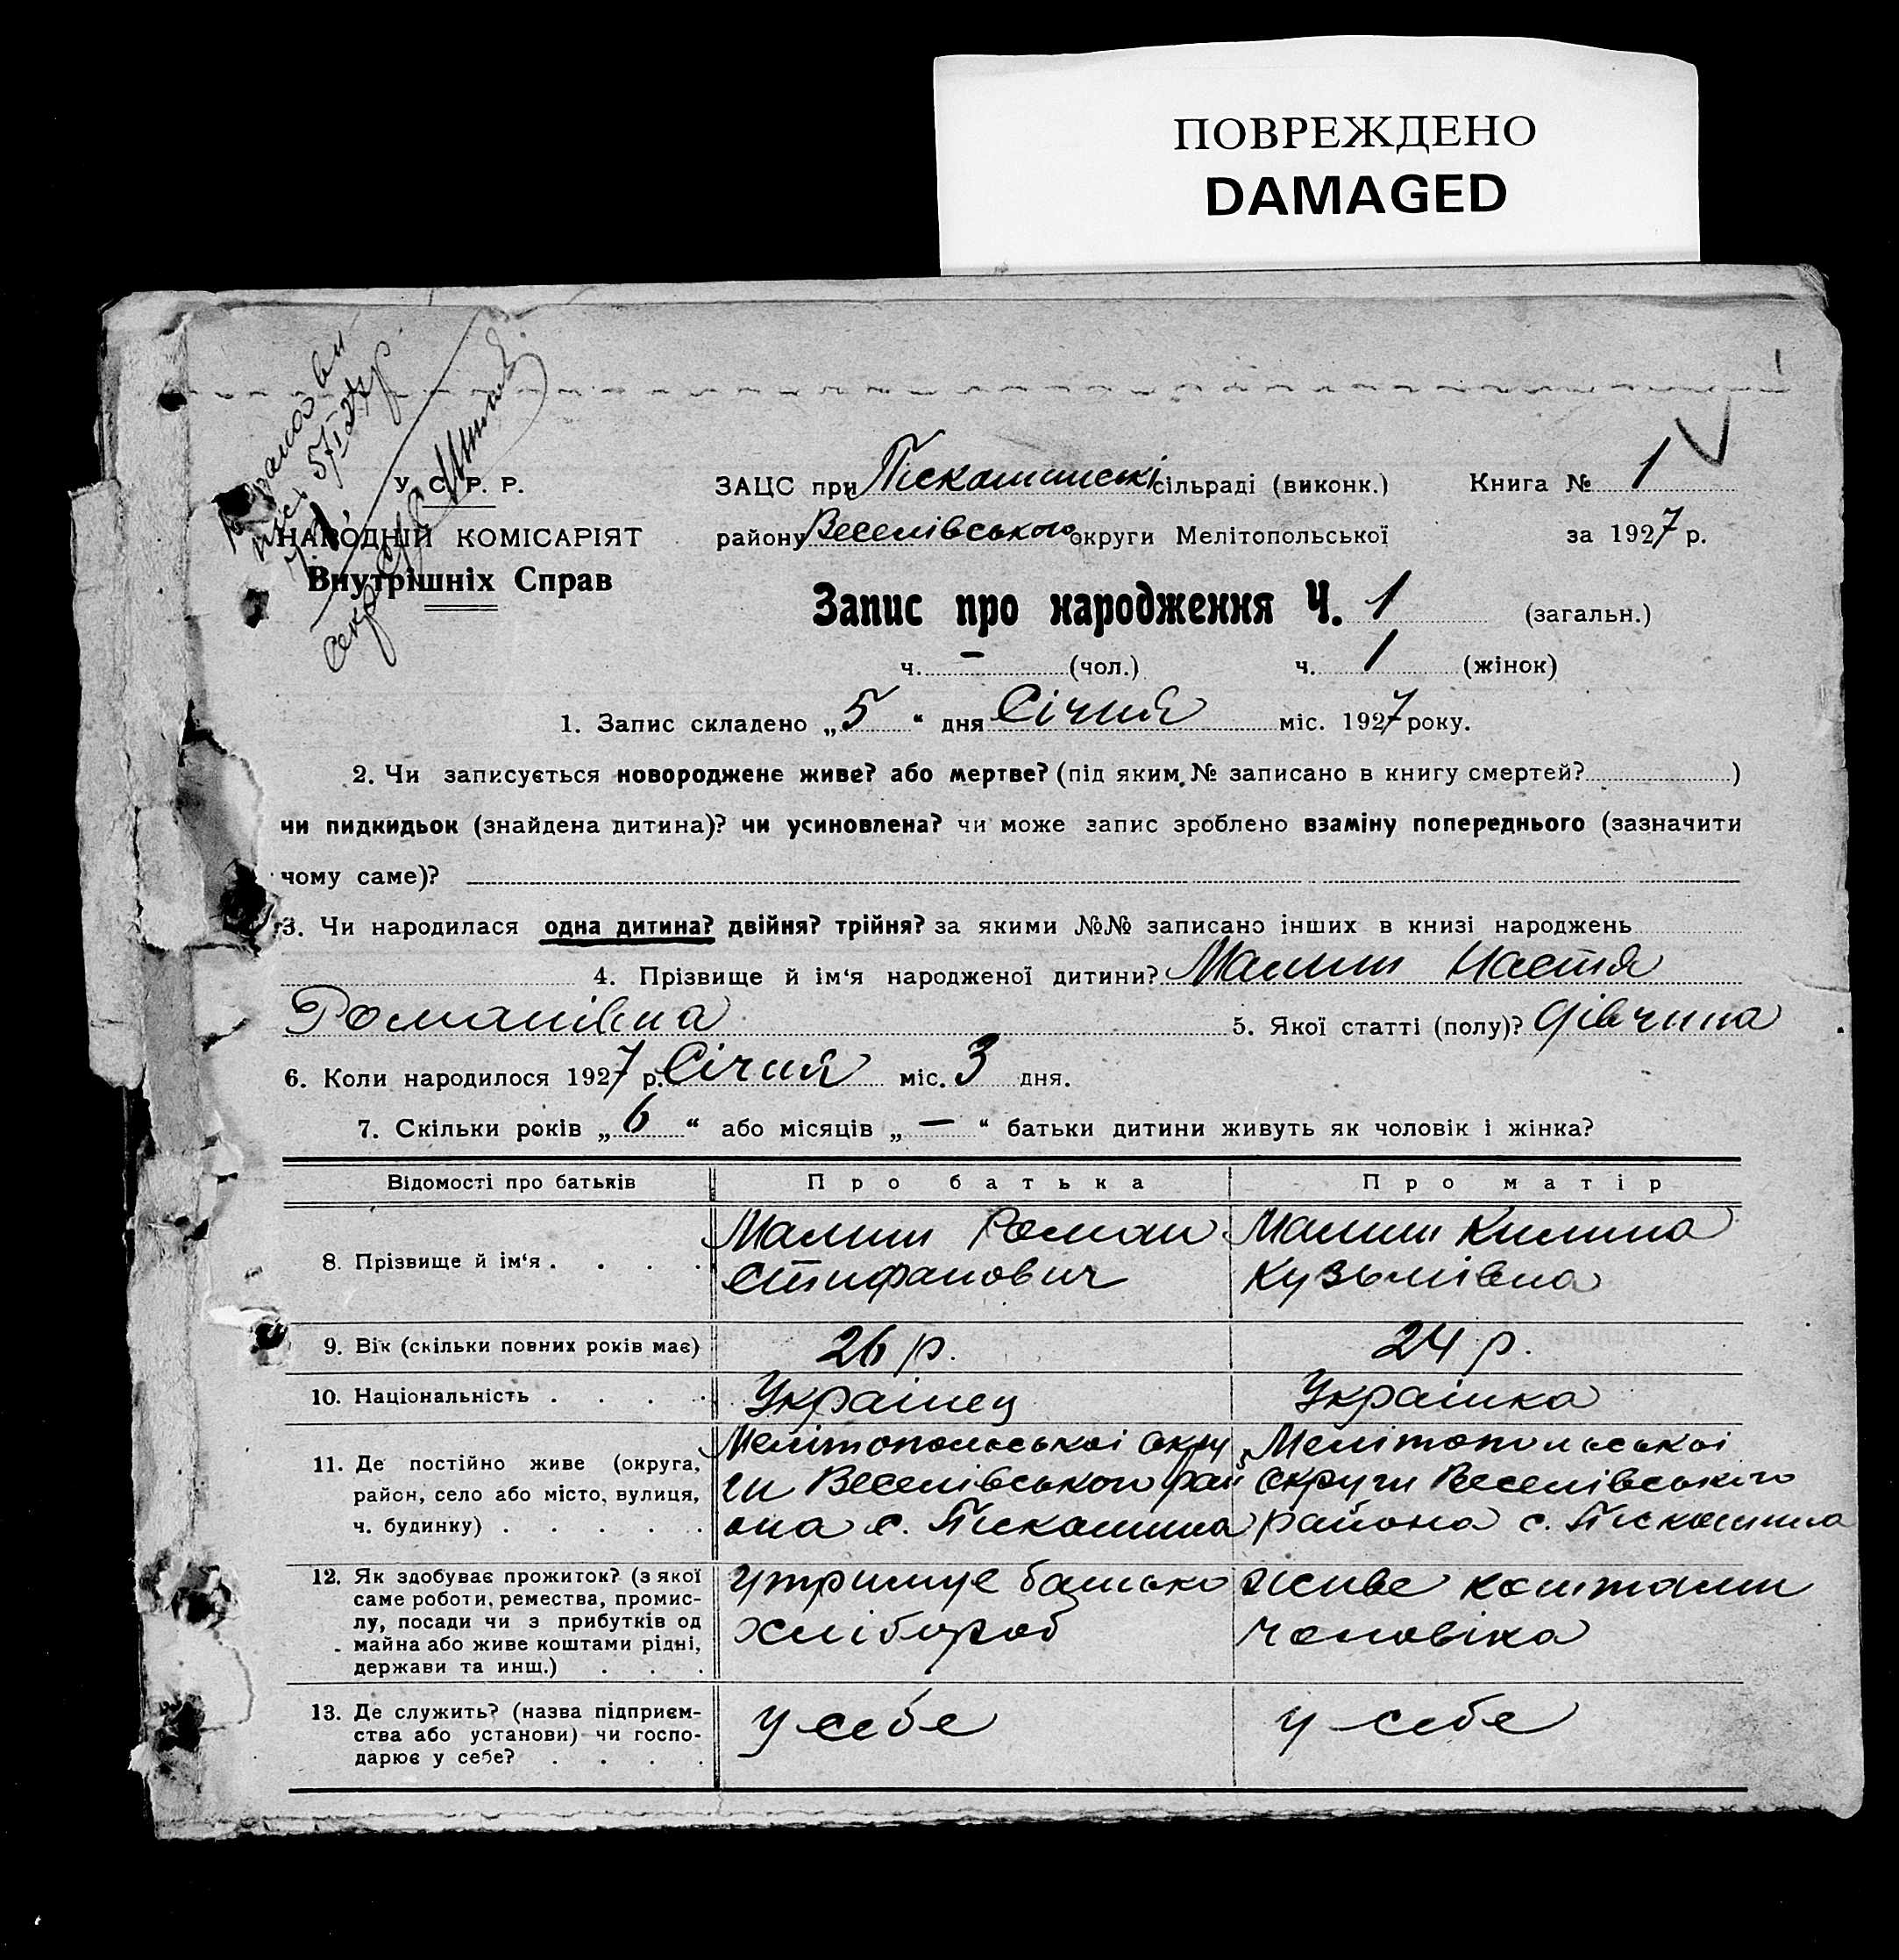 ПОВРЕЖДЕНО
DAMAGED
5/I 27 р.
У. С. Р. Р.
НАРОДНІЙ КОМІСАРІЯТ
Внутрішніх Справ
ЗАЦС при Піскашинські сільраді (виконк.) Книга № 1
району Веселівського округи Мелітопольської за 1927 р.
Запис про народження Ч. 1 (загальн.)
ч. — (чол.) ч. 1 (жінок)
1. Запис складено „5“ дня Січня міс. 1927 року.
2. Чи записується новороджене живе? або мертве? (під яким № записано в книгу смертей? )
чи пидкидьок (знайдена дитина)? чи усиновлена? чи може запис зроблено взаміну попереднього (зазначити
чому саме)?
3. Чи народилася одна дитина? двійня? трійня? за якими №№ записано інших в книзі народжень
4. Прізвище й ім‘я народженої дитини? Малиш Настя
Романівна 5. Якої статті (полу)? дівчина
6. Коли народилося 1927 р. Січня міс. 3 дня.
7. Скільки років „6“ або місяців „—“ батьки дитини живуть як чоловік і жінка?
Відомості про батьків Про батька Про матір
8. Прізвище й ім‘я . . . . Малиш Роман Малиш Килина
Стифанович Кузьмівна
9. Вік (скільки повних років має) 26 р. 24 р.
10. Національність . . . . Украінец Украінка
11. Де постійно живе (округа, Мелітопольськоі окру Мелітопольськоі
район, село або місто, вулиця, ги Веселівського рай округи Веселівського
ч. будинку) . . . . . она с. Пискашина района с. Пискашина
12. Як здобуває прожиток? (з якої утримує батько живе коштами
саме роботи, ремества, промис-
лу, посади чи з прибутків од хлібороб чоловіка
майна або живе коштами рідні,
держави та инш.) . . .
13. Де служить? (назва підприєм- у себе у себе
ства або установи) чи госпо-
дарює у себе? . . . .